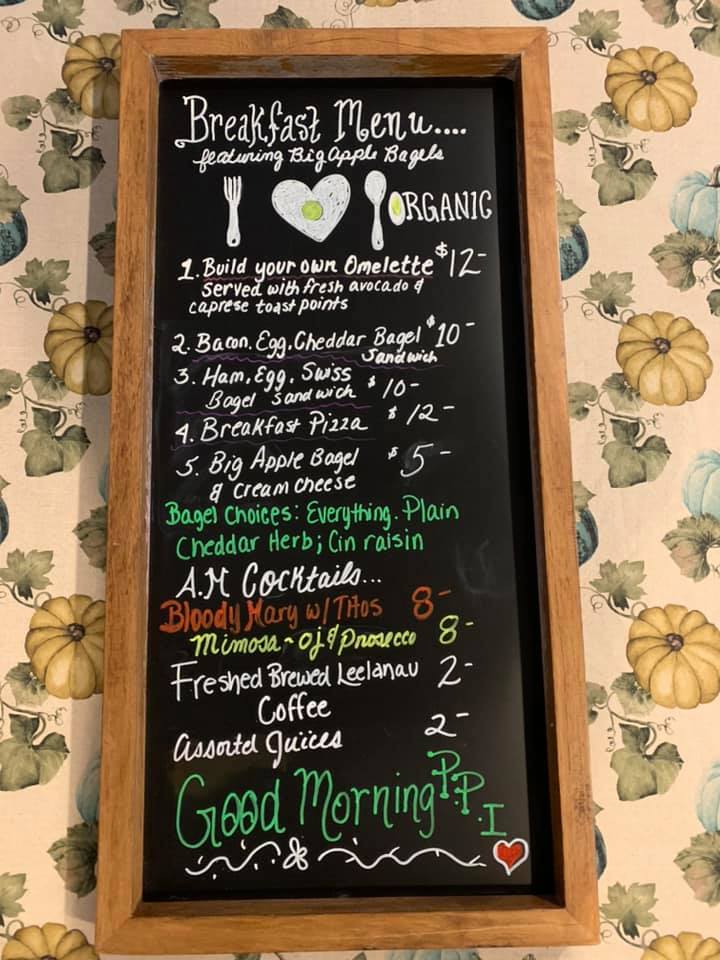 Breakfast Menu....
featuring Big Apple Bagels
ORGANIC
1. Build your own Omelette $12-
Served with fresh avocado &
caprese toast points
2. Bacon, Egg, Cheddar Bagel $10-
Sandwich
3. Ham, Egg, Swiss
Bagel Sandwich $10-
4. Breakfast Pizza $12-
5. Big Apple Bagel $5-
& cream cheese
Bagel Choices: Everything. Plain
Cheddar Herb; Cin raisin
A.M Cocktails...
Bloody Mary w/ Titos 8-
Mimosa - oj & Prosecco 8-
Freshed Brewed Leelanau 2-
Coffee
Assorted Juices 2-
Good Morning P.P.I